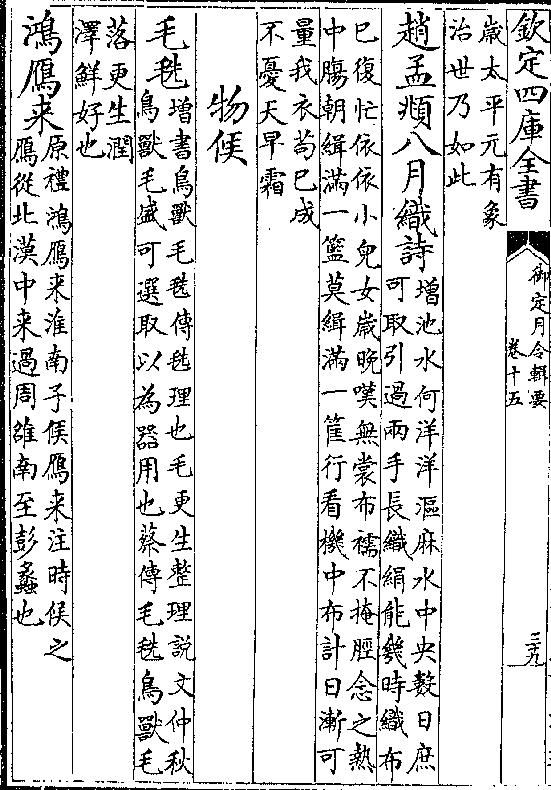 欽定四庫全書
御定月令輯要
卷十五
三九
歲太平元有象
治世乃如此
趙孟頫八月織詩
增池水何洋洋漚麻水中央數日庶
可取引過兩手長織絹能幾時織布
已復忙依依小兒女歲晚嘆無裳布襦不掩脛念之熱
中腸朝緝滿一籃莫緝滿一筐行看機中布計日漸可
量我衣苟已成
不憂天早霜
物候
毛毨
增書鳥獸毛毨傳毨理也毛更生整理說文仲秋
鳥獸毛盛可選取以為器用也蔡傳毛毨鳥獸毛
落更生潤
澤鮮好也
鴻鴈来
原禮鴻鴈来淮南子侯鴈来注時候之
鴈從北漠中来過周雒南至彭蠡也